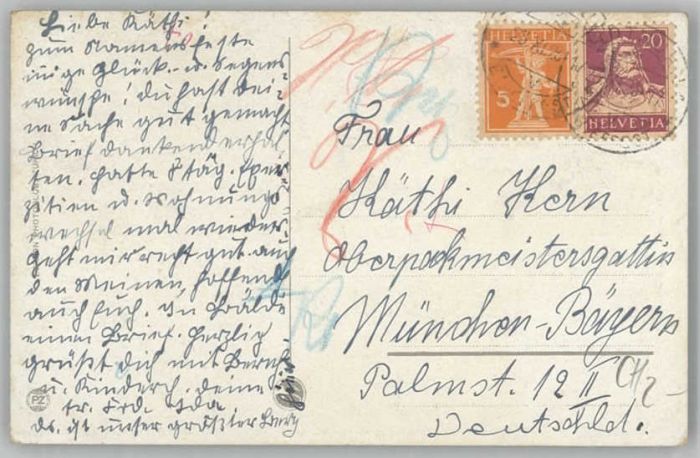 Liebe Käthi!
zum Namensfeste
innige Glück- u. Segens-
wünsche! du hast dei-
ne Sache gut gemacht
Brief dankend erhal-
ten. hatte 8 täg. Exer-
zitien u. Wohnungs
wechsel mal wieder.
geht mir recht gut. auch
den Meinen, hoffend
auch Euch. In Bälde
einen Brief. Herzlig
grüßt dich mit Bernh
u. Kinderch. deine
tr. Frd. Ida
ds. ist unser größter Berg
HELVETIA
5
20
HELVETIA
Frau
Käthi Kern
Oberpackmeistersgattin
München-Bayern
Palmst. 12 II
Deutschld.
CH2-
PZ